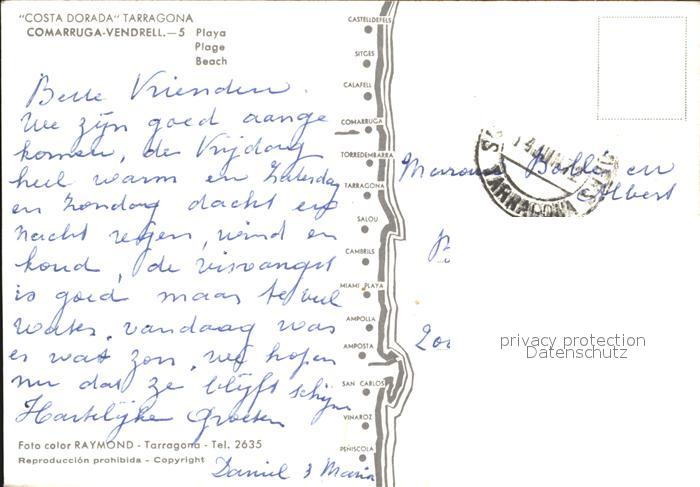 "COSTA DORADA" TARRAGONA
COMARRUGA-VENDRELL.-5 Playa
Plage
Beach
Beste Vrienden.
We zijn goed aange
komen, de Vrijdag
heel warm en Zaterdag
en Zondag dacht en
nacht regen, wind en
koud, de visvangst
is goed maar te veel
water, vandaag was
er wat zon, we hopen
nu dat ze blijft schijn
Hartelijke Groeten
Daniel & Maria
Foto color RAYMOND - Tarragona - Tel. 2635
Reproducción prohibida - Copyright
CASTELLDEFELS
SITGES
CALAFELL
COMARRUGA
TORREDEMBARRA
TARRAGONA
SALOU
CAMBRILS
MIAMI PLAYA
AMPOLLA
AMPOSTA
SAN CARLOS
VINAROZ
PEÑISCOLA
TARRAGONA
en
Albert
privacy protection
Datenschutz